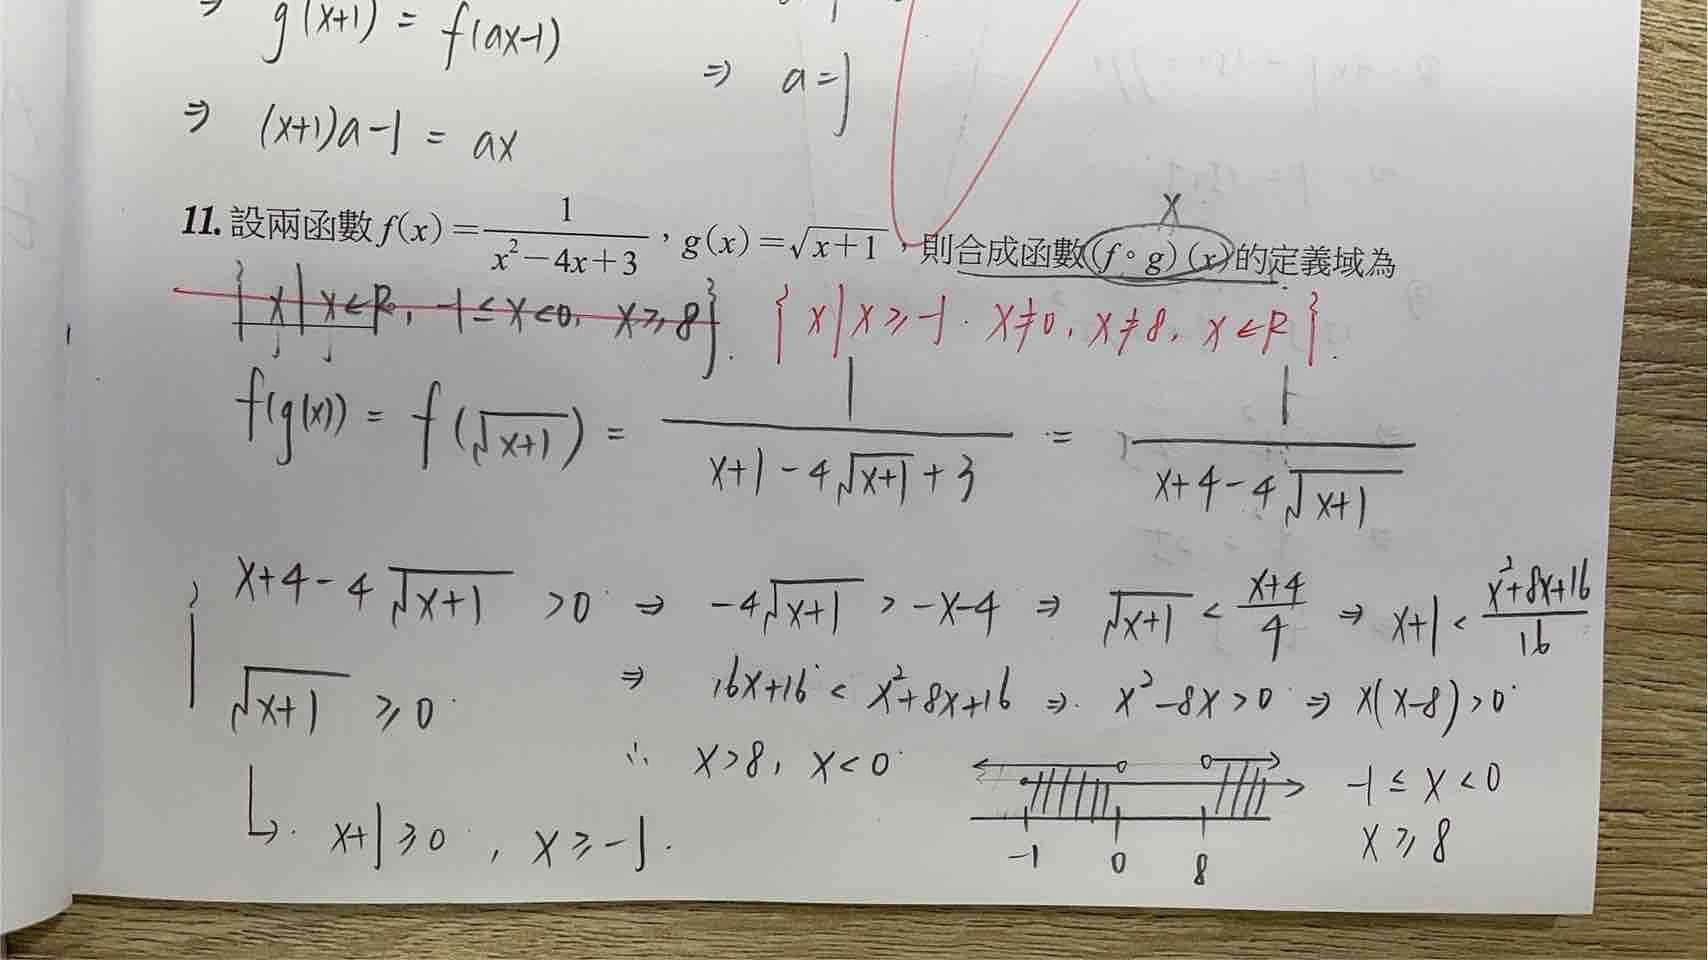 ⇒ g(x+1) = f(ax-1)
⇒ a=1
⇒ (x+1)a-1 = ax
x
11. 設兩函數 f(x)=1/(x²-4x+3)，g(x)=√(x+1)，則合成函數(f∘g)(x)的定義域為
{x|x∈R, -1≤x<0, x≥8}. {x|x≥-1. x≠0, x≠8, x∈R}.
f(g(x)) = f(√(x+1)) = 1/(x+1-4√(x+1)+3) = 1/(x+4-4√(x+1))
x+4-4√(x+1) >0 ⇒ -4√(x+1) > -x-4 ⇒ √(x+1) < (x+4)/4 ⇒ x+1 < (x²+8x+16)/16
√(x+1) ≥0 ⇒ 16x+16 < x²+8x+16 ⇒ x²-8x>0 ⇒ x(x-8)>0
∴ x>8, x<0
-1 ≤ x < 0
x+1≥0, x≥-1.
-1 0 8
x ≥ 8